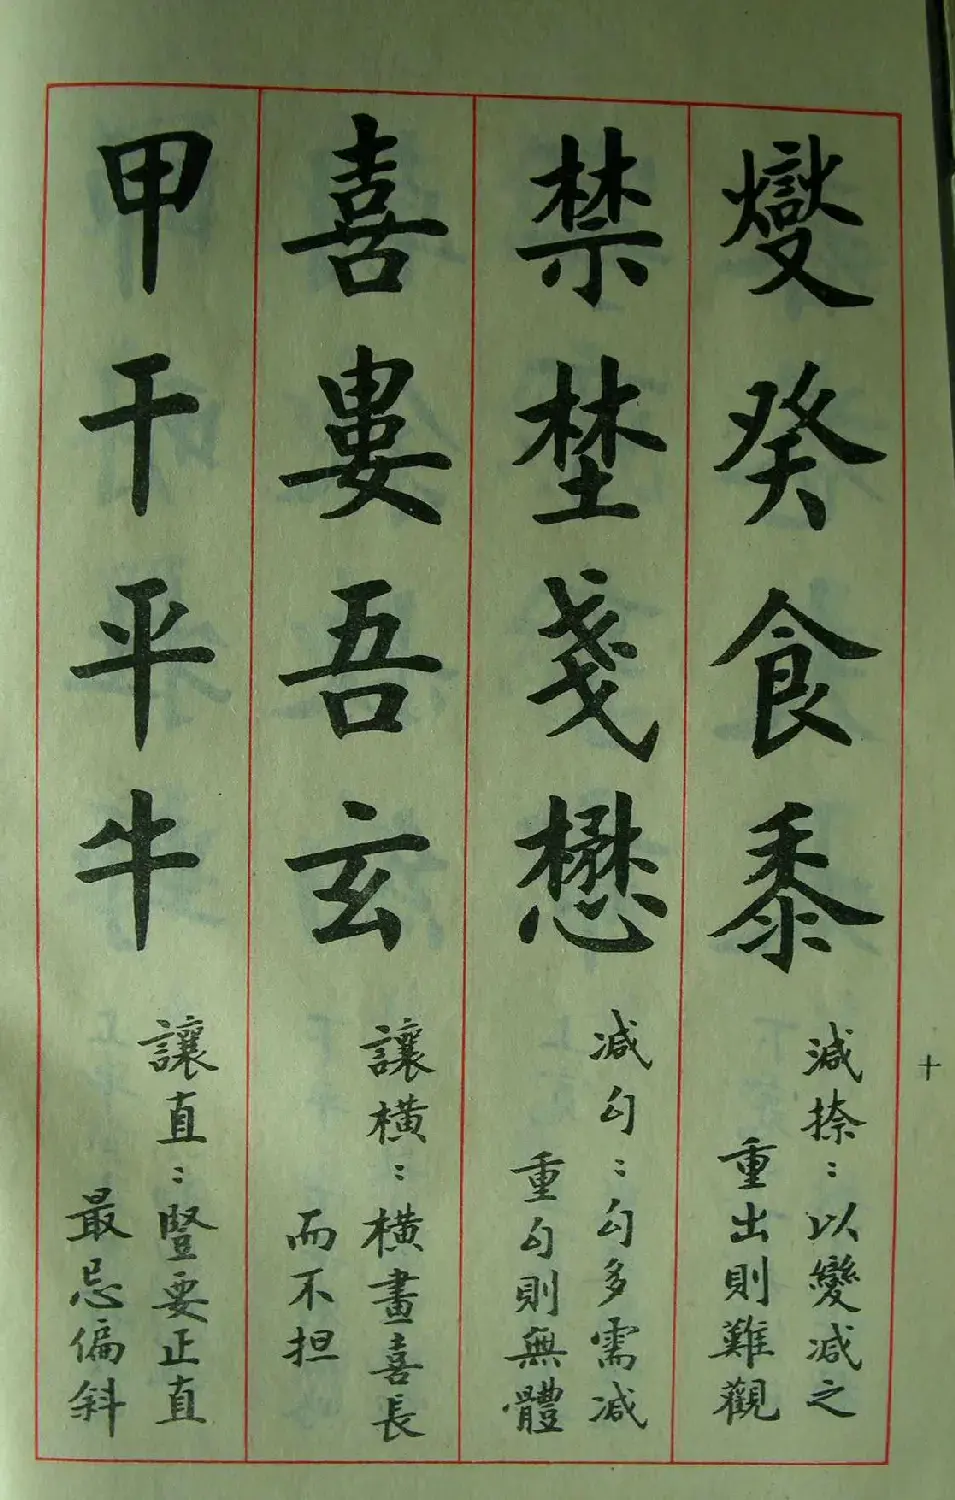 燮癸食黍
減捺：以變減之
重出則難觀
禁埜戔懋
減勾：勾多需減
重勾則無體
喜婁吾玄
讓橫：橫畫喜長
而不担
甲干平牛
讓直：豎要正直
最忌偏斜
十